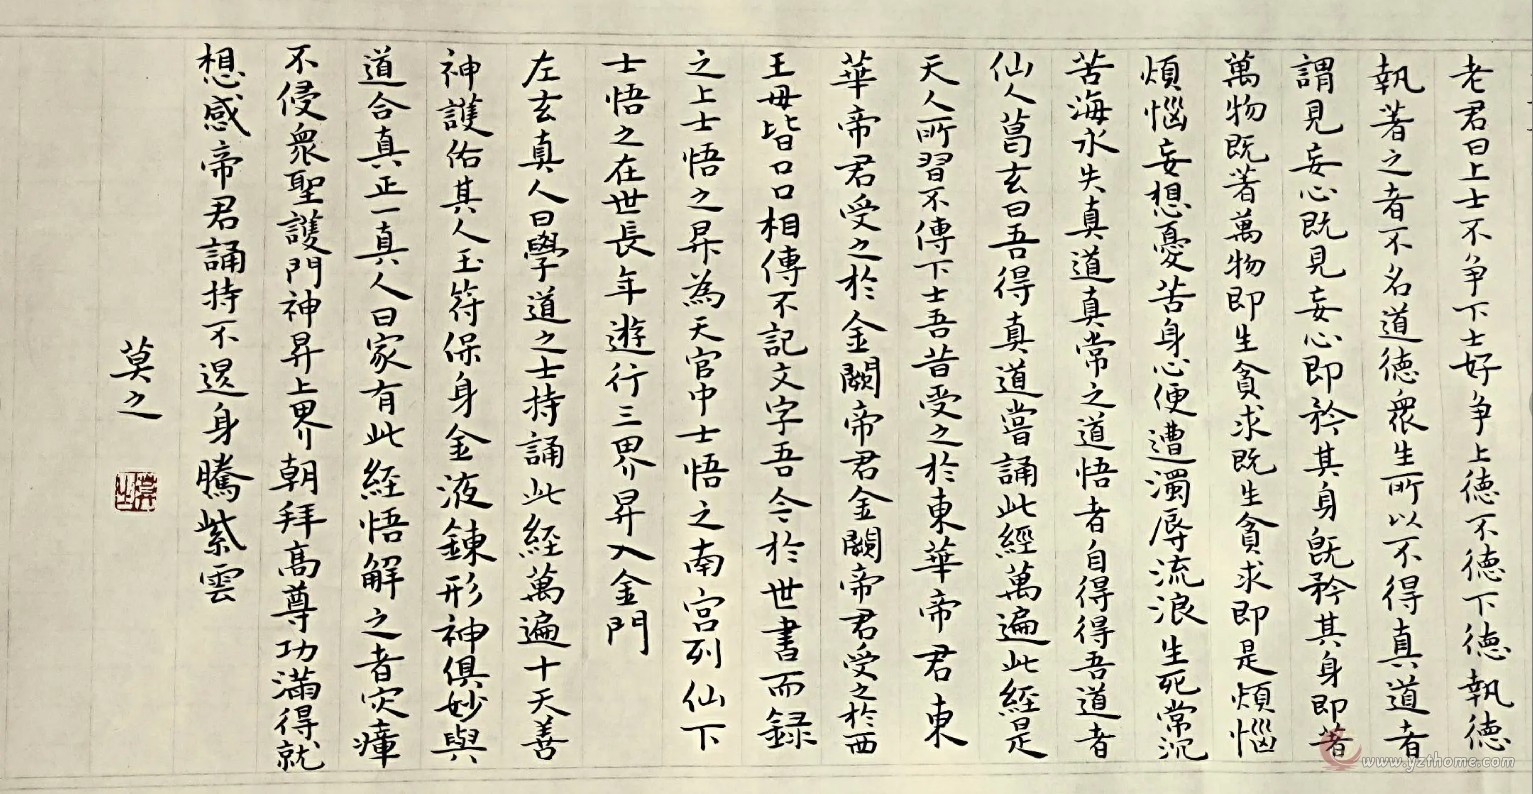 老君曰上士不争下士好争上德不德下德執德
執著之者不名道德衆生所以不得真道者
謂見妄心既見妄心即矜其身既矜其身即著
萬物既著萬物即生貪求既生貪求即是煩惱
煩惱妄想憂苦身心便遭濁辱流浪生死常沉
苦海永失真道真常之道悟者自得得吾道者
仙人葛玄曰吾得真道嘗誦此經萬遍此經是
天人所習不傳下士吾昔受之於東華帝君東
華帝君受之於金闕帝君金闕帝君受之於西
王母皆口口相傳不記文字吾今於世書而録
之上士悟之昇為天官中士悟之南宫列仙下
士悟之在世長年遊行三界昇入金門
左玄真人曰學道之士持誦此経萬遍十天善
神護佑其人玉符保身金液鍊形神俱妙與
道合真正一真人曰家有此経悟解之者灾瘴
不侵衆聖護門神昇上界朝拜高尊功滿得就
想感帝君誦持不退身騰紫雲
莫之
莫之
www.yzthome.com